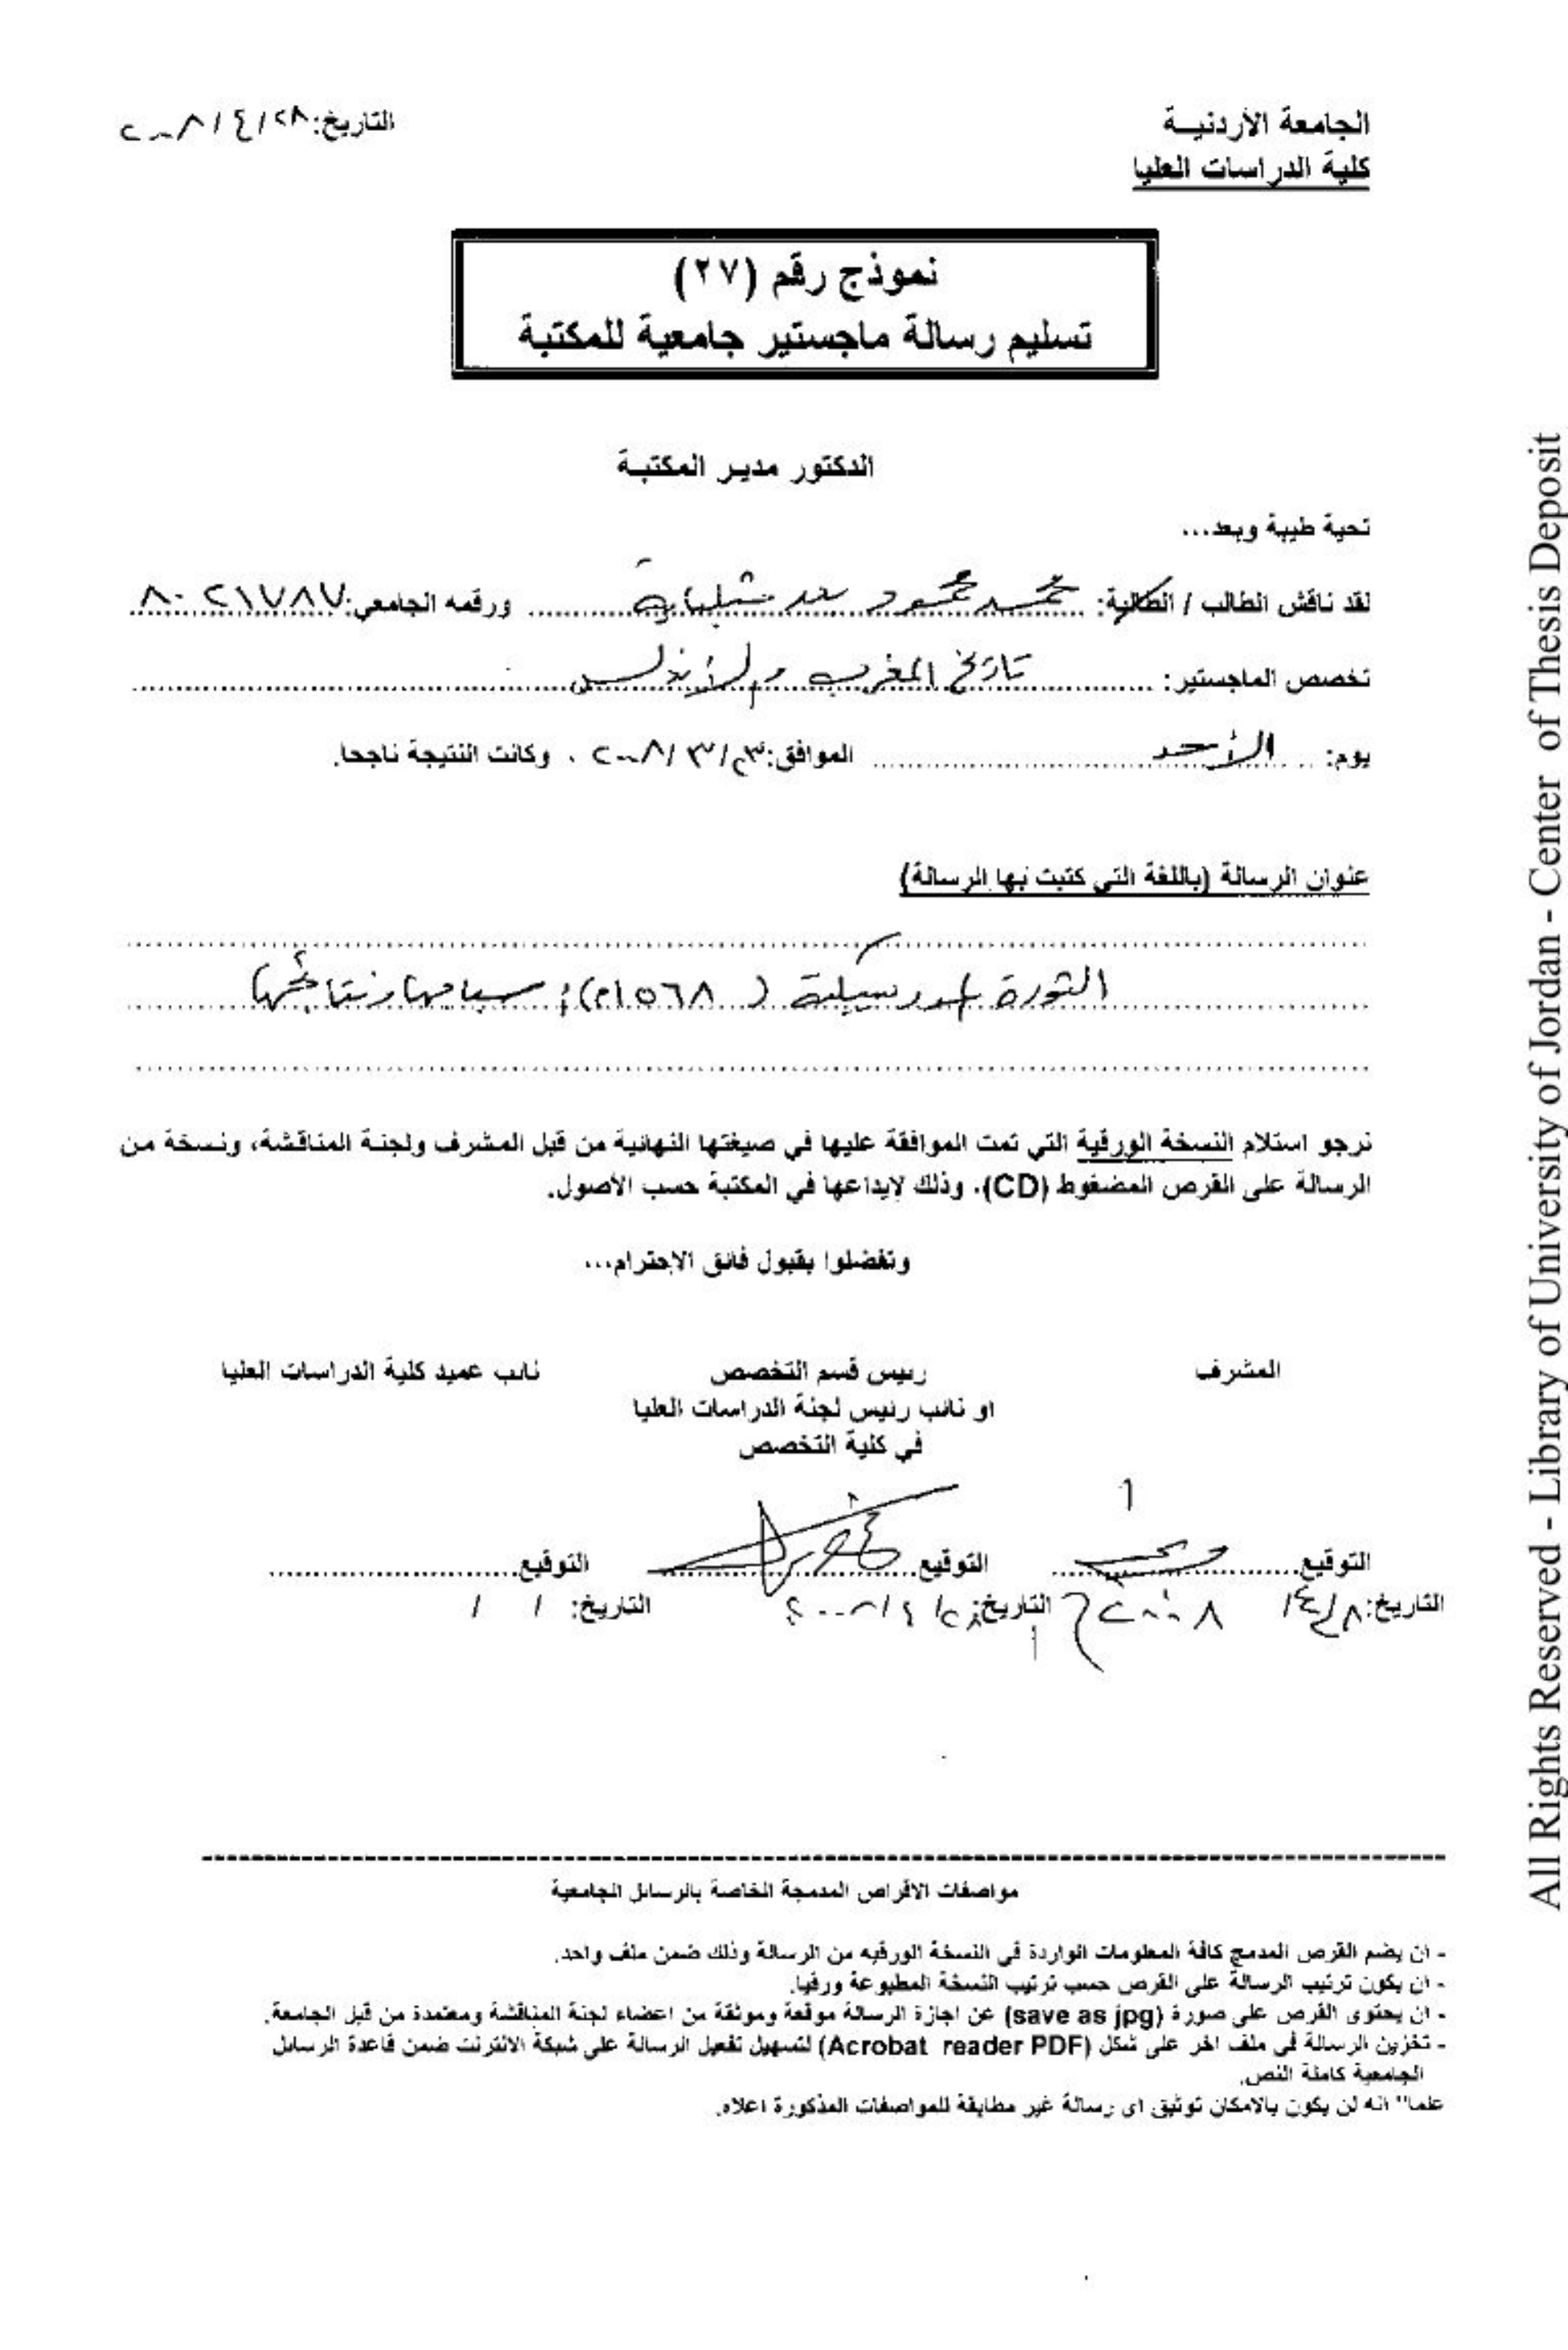 الجامعة الأردنيـــة
التاريخ: ٢٨/ ٤/ ٢٠٠٨
كلية الدراسات العليا
نموذج رقم (٢٧)
تسليم رسالة ماجستير جامعية للمكتبة
الدكتور مدير المكتبة
تحية طيبة وبعد...
لقد ناقش الطالب / الطالبة: محمد محمود سعد شلباية ورقمه الجامعي: ٨٠٢١٧٨٧
تخصص الماجستير: تاريخ المغرب والأندلس
يوم: الأحد الموافق: ٢٣/ ٣/ ٢٠٠٨ . وكانت النتيجة ناجحا.
عنوان الرسالة (باللغة التي كتبت بها الرسالة)
الثورة الموريسكية (١٥٦٨م): أسبابها ونتائجها
نرجو استلام النسخة الورقية التي تمت الموافقة عليها في صيغتها النهائية من قبل المشرف ولجنة المناقشة، ونسخة من
الرسالة على القرص المضغوط (CD)، وذلك لإيداعها في المكتبة حسب الأصول.
وتفضلوا بقبول فائق الاحترام...
المشرف رئيس قسم التخصص نائب عميد كلية الدراسات العليا
او نائب رئيس لجنة الدراسات العليا
في كلية التخصص
التوقيع التوقيع التوقيع
التاريخ: التاريخ: التاريخ: / /
مواصفات الاقراص المدمجة الخاصة بالرسائل الجامعية
- ان يضم القرص المدمج كافة المعلومات الواردة في النسخة الورقيه من الرسالة وذلك ضمن ملف واحد.
- ان يكون ترتيب الرسالة على القرص حسب ترتيب النسخة المطبوعة ورقيا.
- ان يحتوى القرص على صورة (save as jpg) عن اجازة الرسالة موقعة وموثقة من اعضاء لجنة المناقشة ومعتمدة من قبل الجامعة.
- تخزين الرسالة في ملف اخر على شكل (Acrobat reader PDF) لتسهيل تفعيل الرسالة على شبكة الانترنت ضمن قاعدة الرسائل
الجامعية كاملة النص.
علما" انه لن يكون بالامكان توثيق اى رسالة غير مطابقة للمواصفات المذكورة اعلاه.
All Rights Reserved - Library of University of Jordan - Center of Thesis Deposit